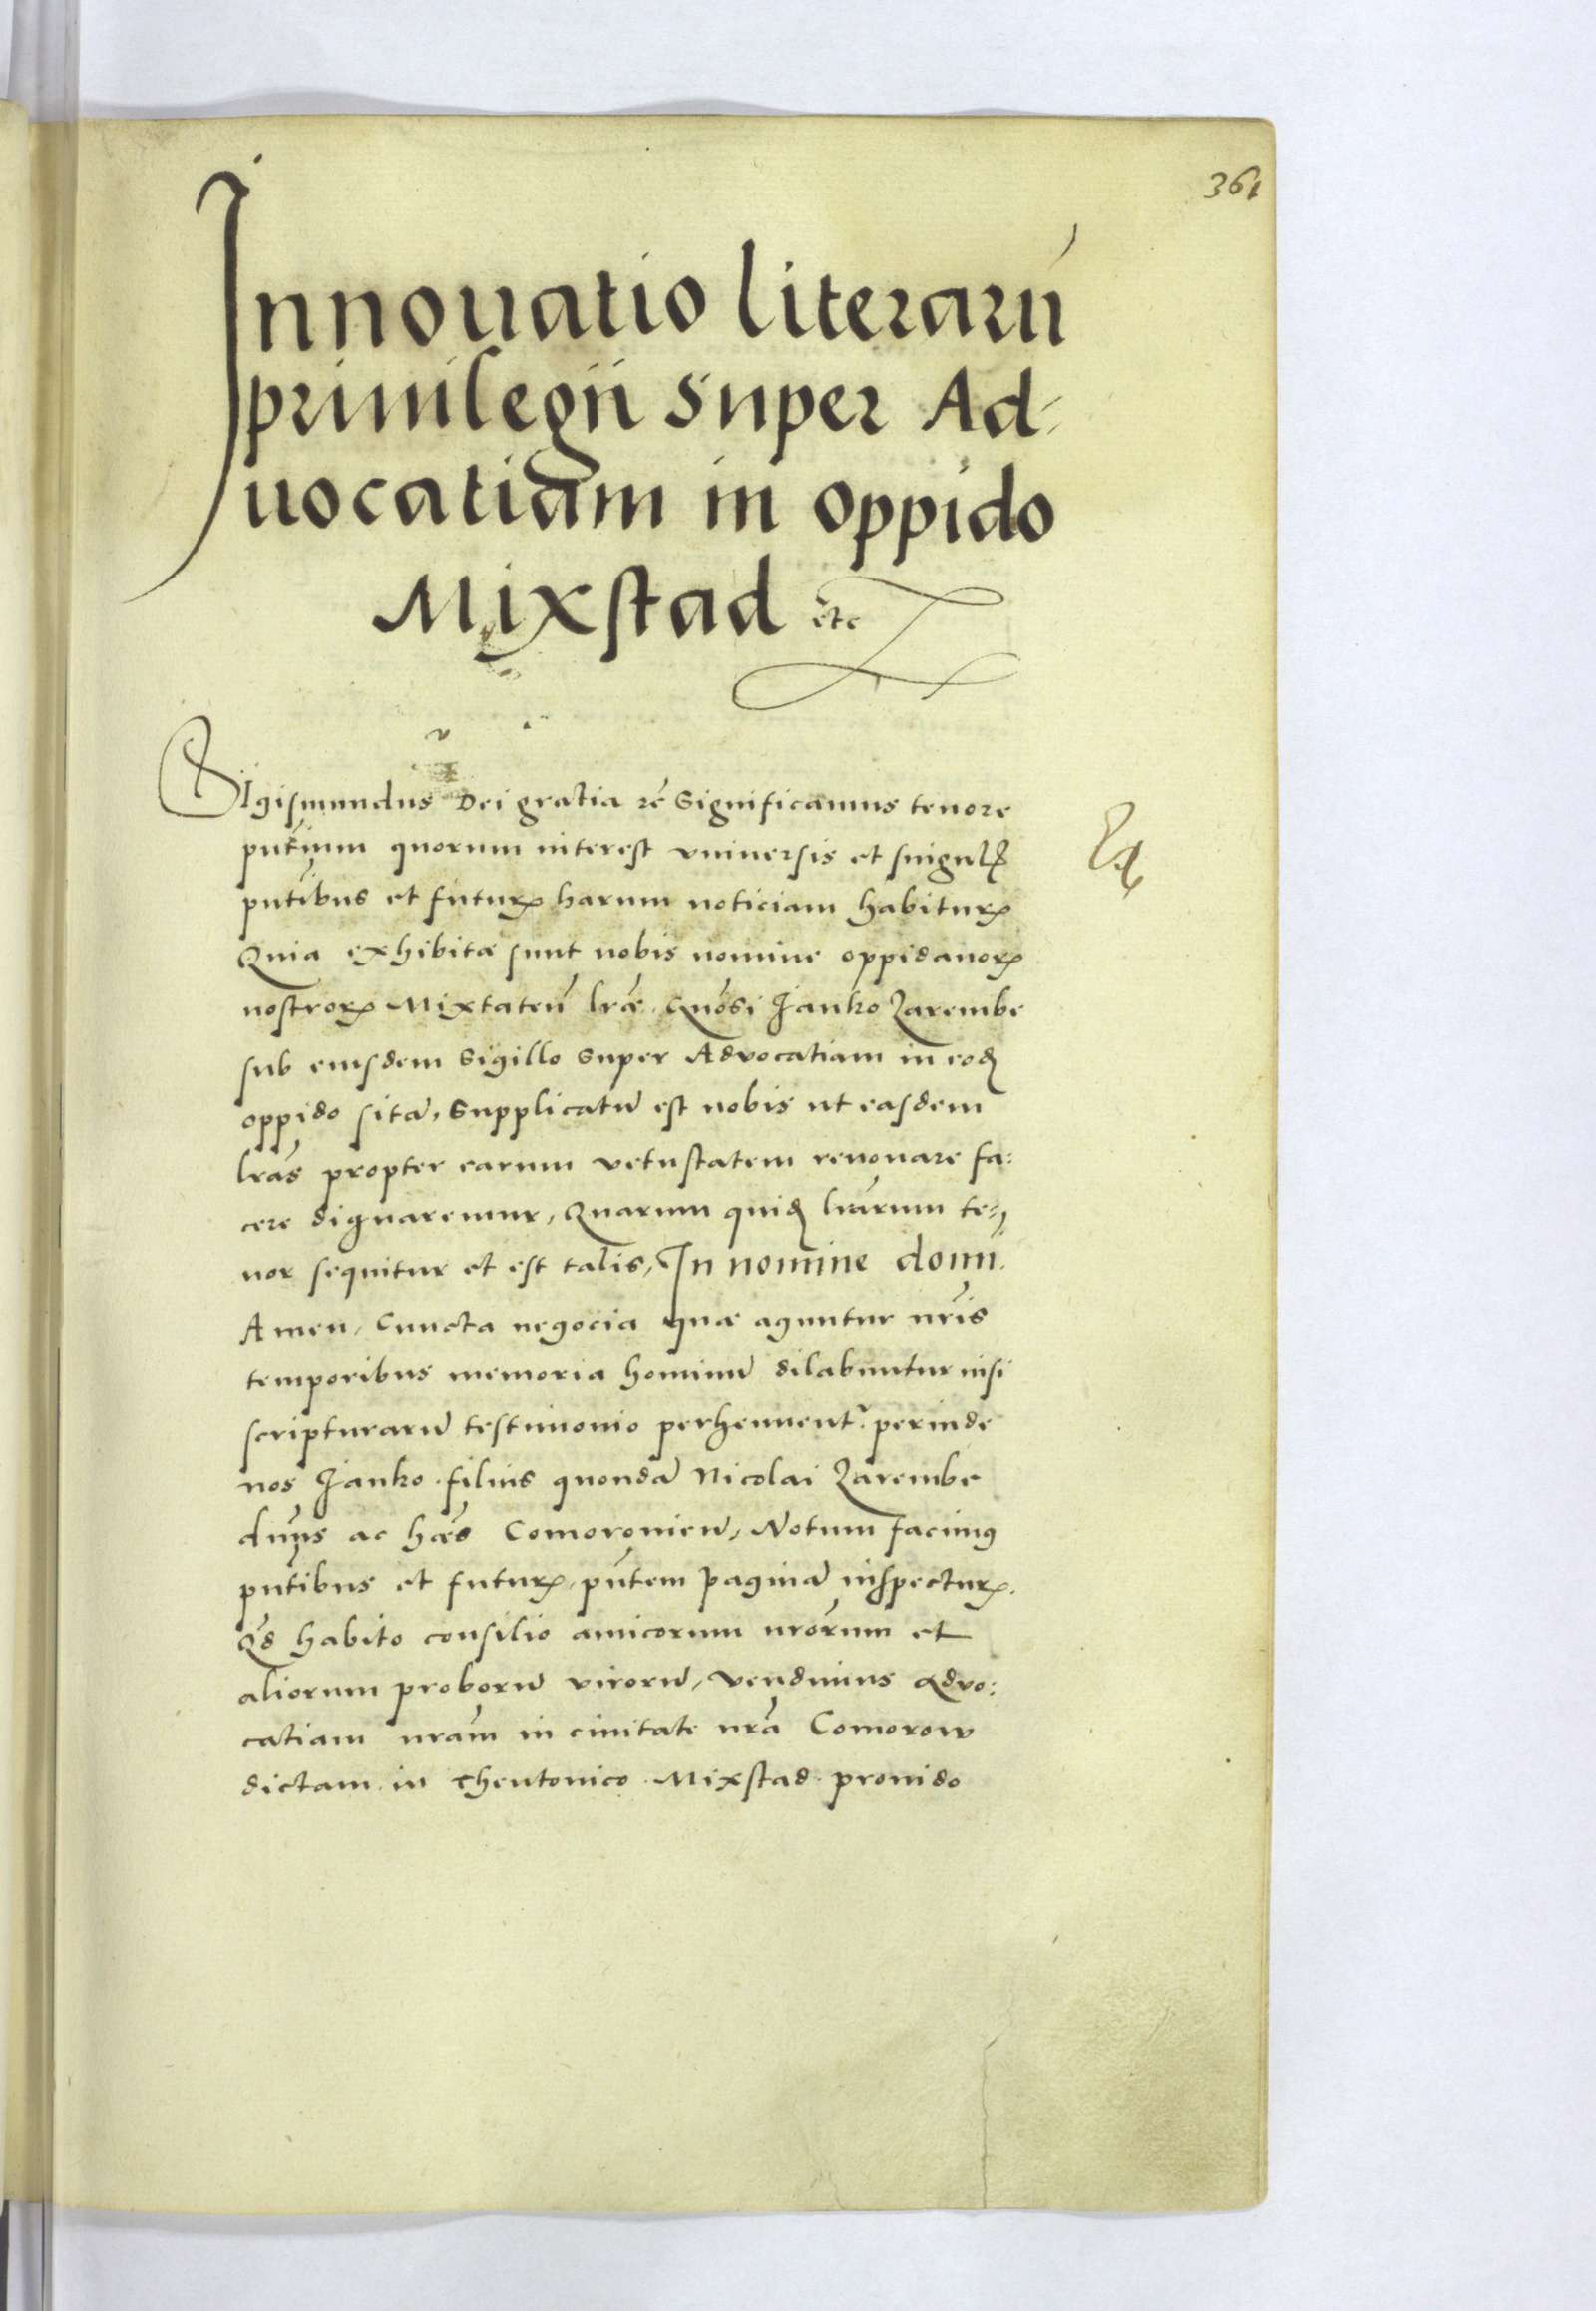 361
Innouatio literarū
priuilegii super Ad-
uocatiam in oppido
Mixstad etc
Sigismundus Dei gratia rē Significamus tenore
pn̄tium quorum interest vniuersis et singulꝭ
pn̄tibus et futurꝭ harum noticiam habiturꝭ
Quia exhibitæ sunt nobis nomine oppidanorꝝ
nostrorꝝ Mixtateñ lr̄æ quōsi Janko Zarembe
sub eiusdem Sigillo super Advocatiam in eođ
oppido sitā, Supplicatū est nobis ut easdem
lr̄as propter earum vetustatem renouare fa:
cere dignaremur, Quarum quiđ lr̄arum te=
nor sequitur et est talis, In nomine domi.
Amen, Cuncta negocia quæ aguntur nr̄is
temporibus memoria hominū dilabuntur nisi
scripturarū testimonio perhennent^r perinde
nos Janko filius quondā Nicolai Zarembe
dn̄us ac hæs Comoronieñ, Notum facimus
pn̄tibus et futurꝭ, pn̄tem paginā inspecturꝭ.
Qđ habito consilio amicorum nr̄orum et
aliorum proborū virorū, vendimus advo:
catiam nr̄am in ciuitate nr̄a Comorow
dictam in Theutonico Mixstad prouido